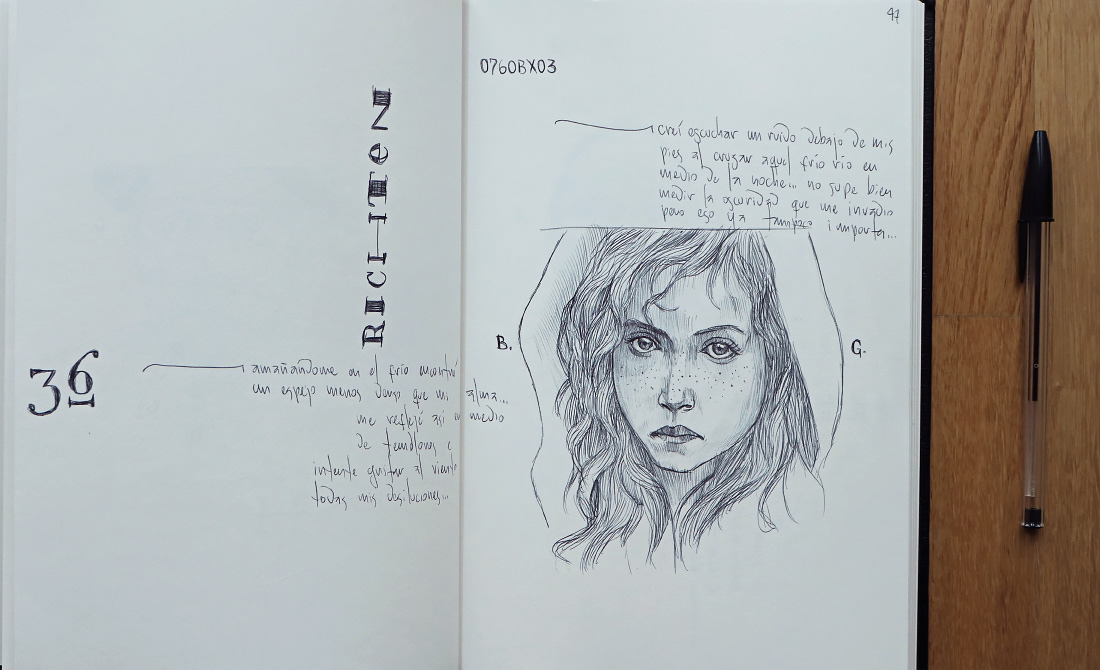 36
RICI—ITEN
amañandome en el frío encontré
un espejo menos denso que mi alma...
me reflejé así en medio
de temblores e
intente gritar al viento
todas mis desiluciones...
47
0760BX03
creí escuchar un ruido debajo de mis
pies al cruzar aquel frío río en
medio de la noche... no supe bien
medir la oscuridad que me invadio
pero eso ya tampoco importa...
B.
G.